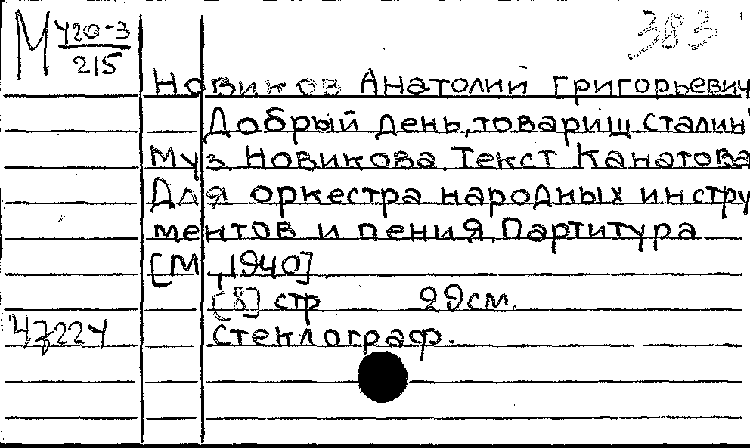 М У20-3
215
383
Новиков Анатолий Григорьевич
Добрый день, товарищ Сталин
Муз. Новикова. Текст Канатова
Для оркестра народных инстру
ментов и пения. Партитура
[М., 1940]
[8] стр 29см.
Стеклограф.